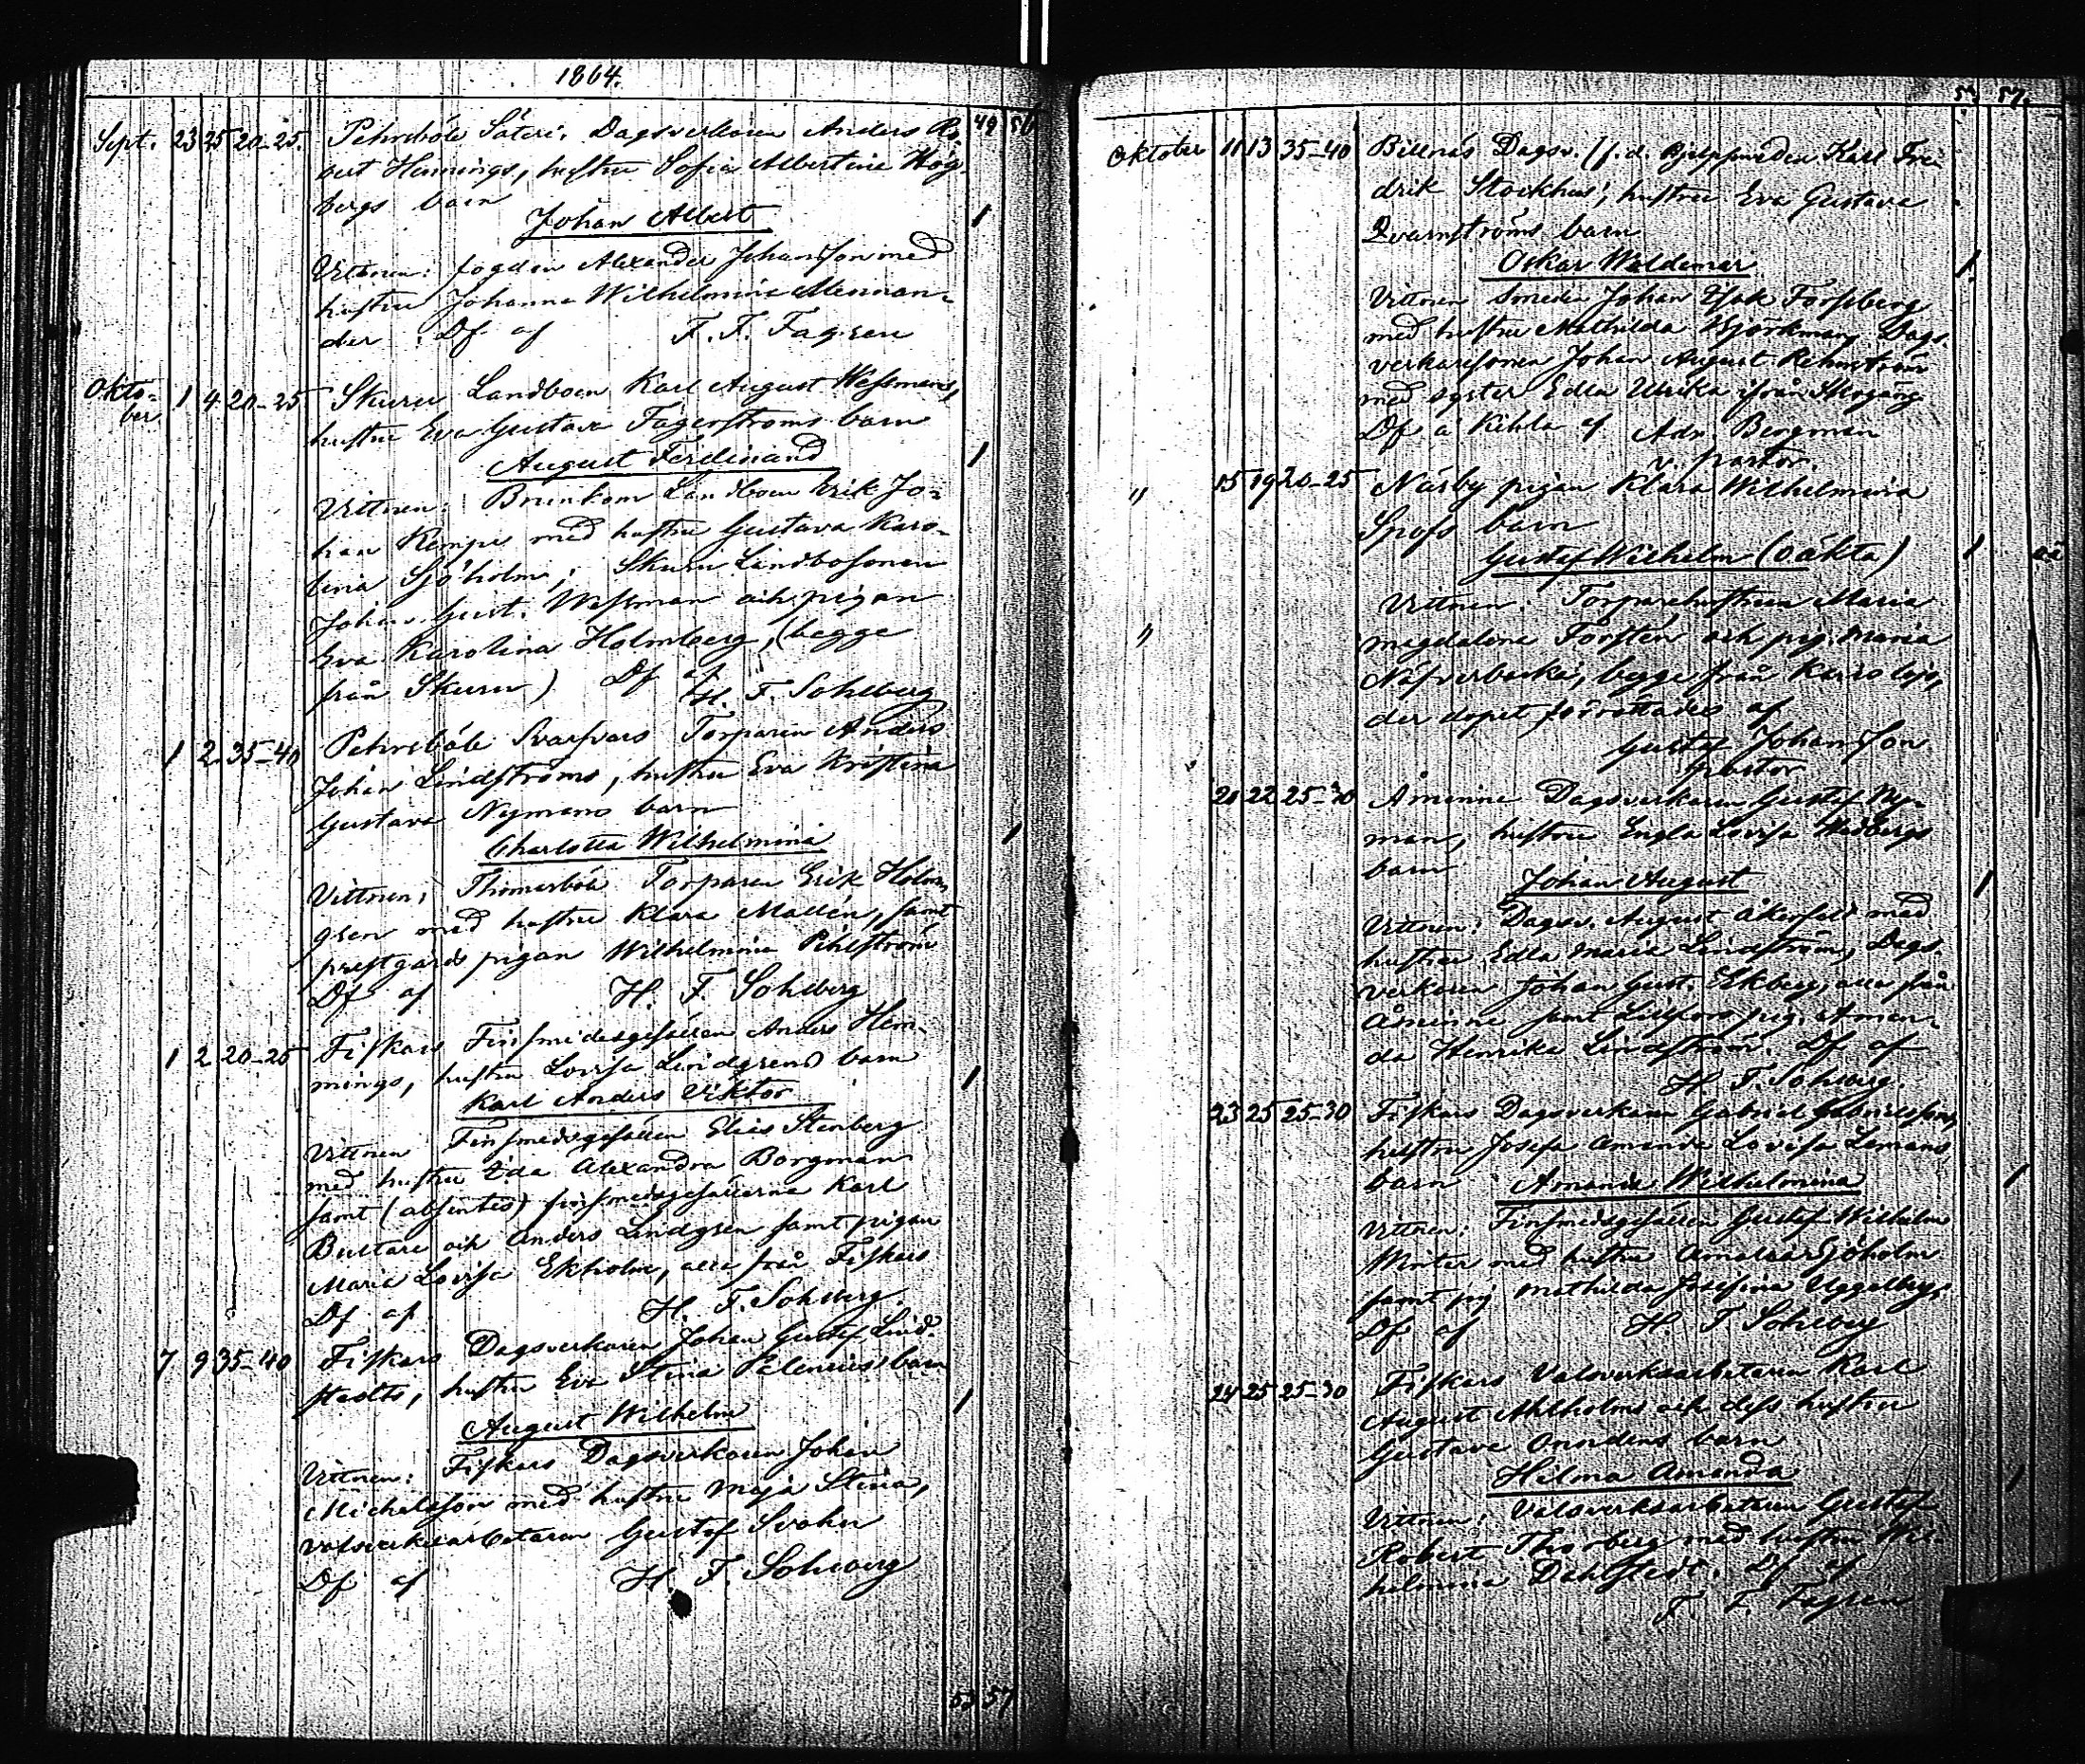 1864.
49 56
Sept. 23 25 20-25. Pehrsböle Säteri, Dagsverkaren Anders Ro-
bert Hennings, hustru Sofia Albertina Hög-
bergs barn
Johan Albert 1
Vittnen: fogden Alexander Johansson med
hustru Johanna Wilhelmina Mennan-
der. Df af F. F. Fagren
Okto-
ber. 1 4 20-25 Skuru Landboen Karl August Wessmans,
hustru Eva Gustava Fagerströms barn
August Ferdinand 1
Vittnen: Brunkom Landboen Erik Jo-
han Kempe med hustru Gustava Karo-
lina Sjöholm; Skuru Landbosonen
Johan Gust. Wessman och pigan
Eva Karolina Holmberg, (begge
från Skuru) Df af
H. F. Sohlberg
1 2 35-40 Pehrsböle Svarfvars Torparen Anders
Johan Lindströms, hustru Eva Kristina
Gustava Nymans barn
Charlotta Wilhelmina 1
Vittnen: Thomasböle Torparen Erik Holm-
gren med hustru Klara Malén, samt
prestgårds pigan Wilhelmina Pihlström
Df af H. F. Sohlberg
1 2 20-25 Fiskars Finsmidesgesällen Anders Hem-
mings, hustru Lovisa Lindgrens barn
Karl Anders Viktor 1
Vittnen Finsmedsgesällen Elis Stenberg
med hustru Ida Alexandra Borgman
samt (absentes) finsmedsgesällerne Karl
Bultare och Anders Lindgren samt pigan
Maria Lovisa Ekholm, alla från Fiskars
Df af H. F. Sohlberg
7 9 35-40 Fiskars Dagsverkaren Johan Gustaf Lind-
stedts, hustru Eva Stina barn
August Wilhelm 1
Vittnen: Fiskars Dagsverkaren Johan
Michelsson med hustru Maja Stina,
valsverksarbetaren Gustaf Svahn
Df af H. F. Sohlberg
53 57
53 57.
Oktober 11 13 35-40 Billnäs Dagsv. (f. d. Karl Fre-
drik Stockhus, hustru Eva Gustava
Qvarnströms barn
Oskar Waldemar 1
Vittnen Smeden Johan Isak Forssberg
med hustru Mathilda Björkman, Dags-
verkaresonen Johan August Rehnström
med syster Edla Ulrika från Skogäng
Df å Kihla af Adr. Bergman
v. pastor.
" 15 19 20-25 Näsby pigan Klara Wilhelmina
Snofs barn
Gustaf Wilhelm (oäkta) 1 oä
Vittnen: Torparehustrun Maria
" Magdalena Forstén och pig. Maria
Näfverbacka, begge från Karis lojo,
der dopet förrättades af
Gustaf Johansson
pastor
20 22 25-30 Åminne Dagsverkaren Gustaf Ny-
man, hustru Engla Lovisa Hedbergs
barn Johan August 1
Vittnen: Dagsv. August Åkerfelt med
hustru Edla Maria Lindström, Dags-
verkaren Johan Gust. Ekberg, alla från
Åminne samt Lillfors pig. Aman-
da Henrika Lindström. Df af
H. F. Sohlberg.
23 25 25-30 Fiskars Dagsverkaren Gabriel Gabrielssons,
hustru Josefa Amanda Lovisa Lemans
barn Amanda Wilhelmina 1
Vittnen: Finsmedsgesällen Gustaf Wilhelm
Winter med hustru Amalia Sjöholm
samt pig Mathilda Josefina Uggelberg.
Df af H. F. Sohlberg
24 25 25-30 Fiskars Valsverksarbetaren Karl
August Ahlholms och dess hustru
Gustava barn
Hilma Amanda 1
Vittnen: Valsverksarbetaren Gustaf
Robert Thorberg med hustru Wil-
helmina Dahlstedt. Df af
F. F. Fagren